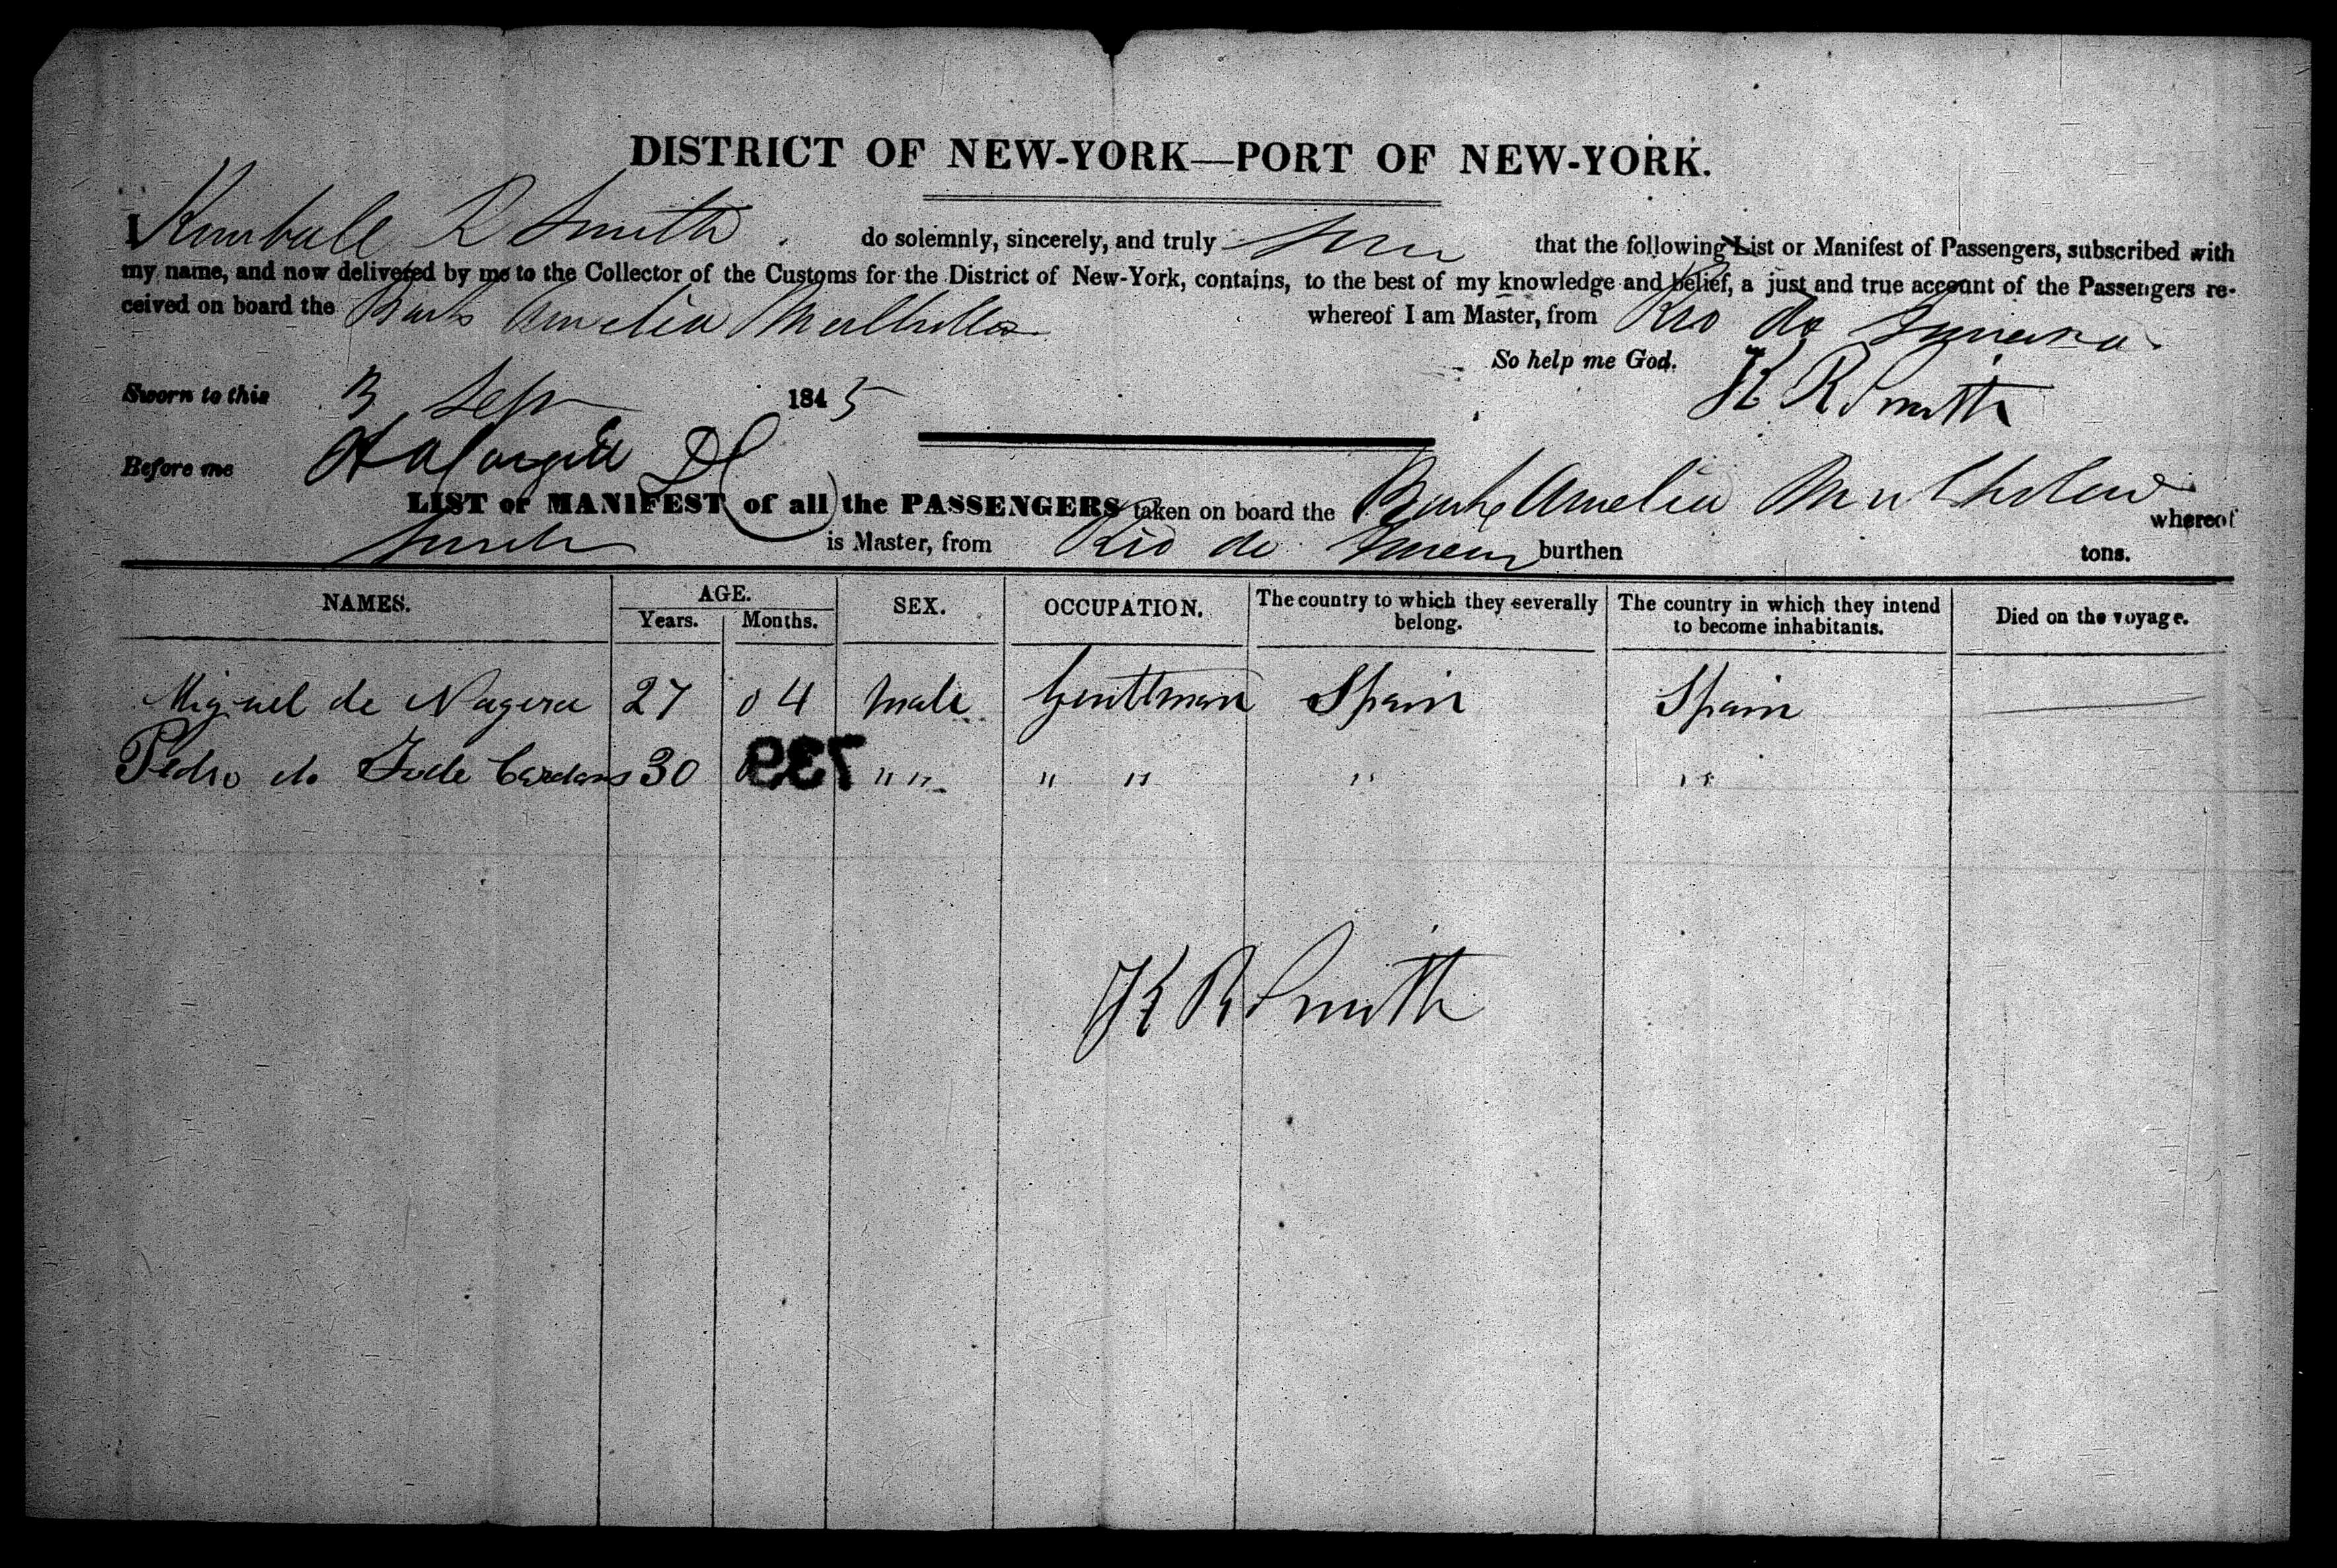 DISTRICT OF NEW-YORK—PORT OF NEW-YORK.
I Kimball R Smith do solemnly, sincerely, and truly that the following List or Manifest of Passengers, subscribed with
my name, and now delivered by me to the Collector of the Customs for the District of New-York, contains, to the best of my knowledge and belief, a just and true account of the Passengers re-
ceived on board the Bark Amelia whereof I am Master, from Rio de
So help me God.
Sworn to this 3 Sep 1845 K R Smith
Before me
LIST or MANIFEST of all the PASSENGERS taken on board the Bark Amelia whereof
is Master, from Rio de burthen tons.
NAMES. AGE. Years. Months. SEX. OCCUPATION. The country to which they severally belong. The country in which they intend to become inhabitants. Died on the voyage.
Miguel de Nagera 27 04 Male Gentleman Spain Spain
Pedro de 30 739 " " " " " "
K R Smith